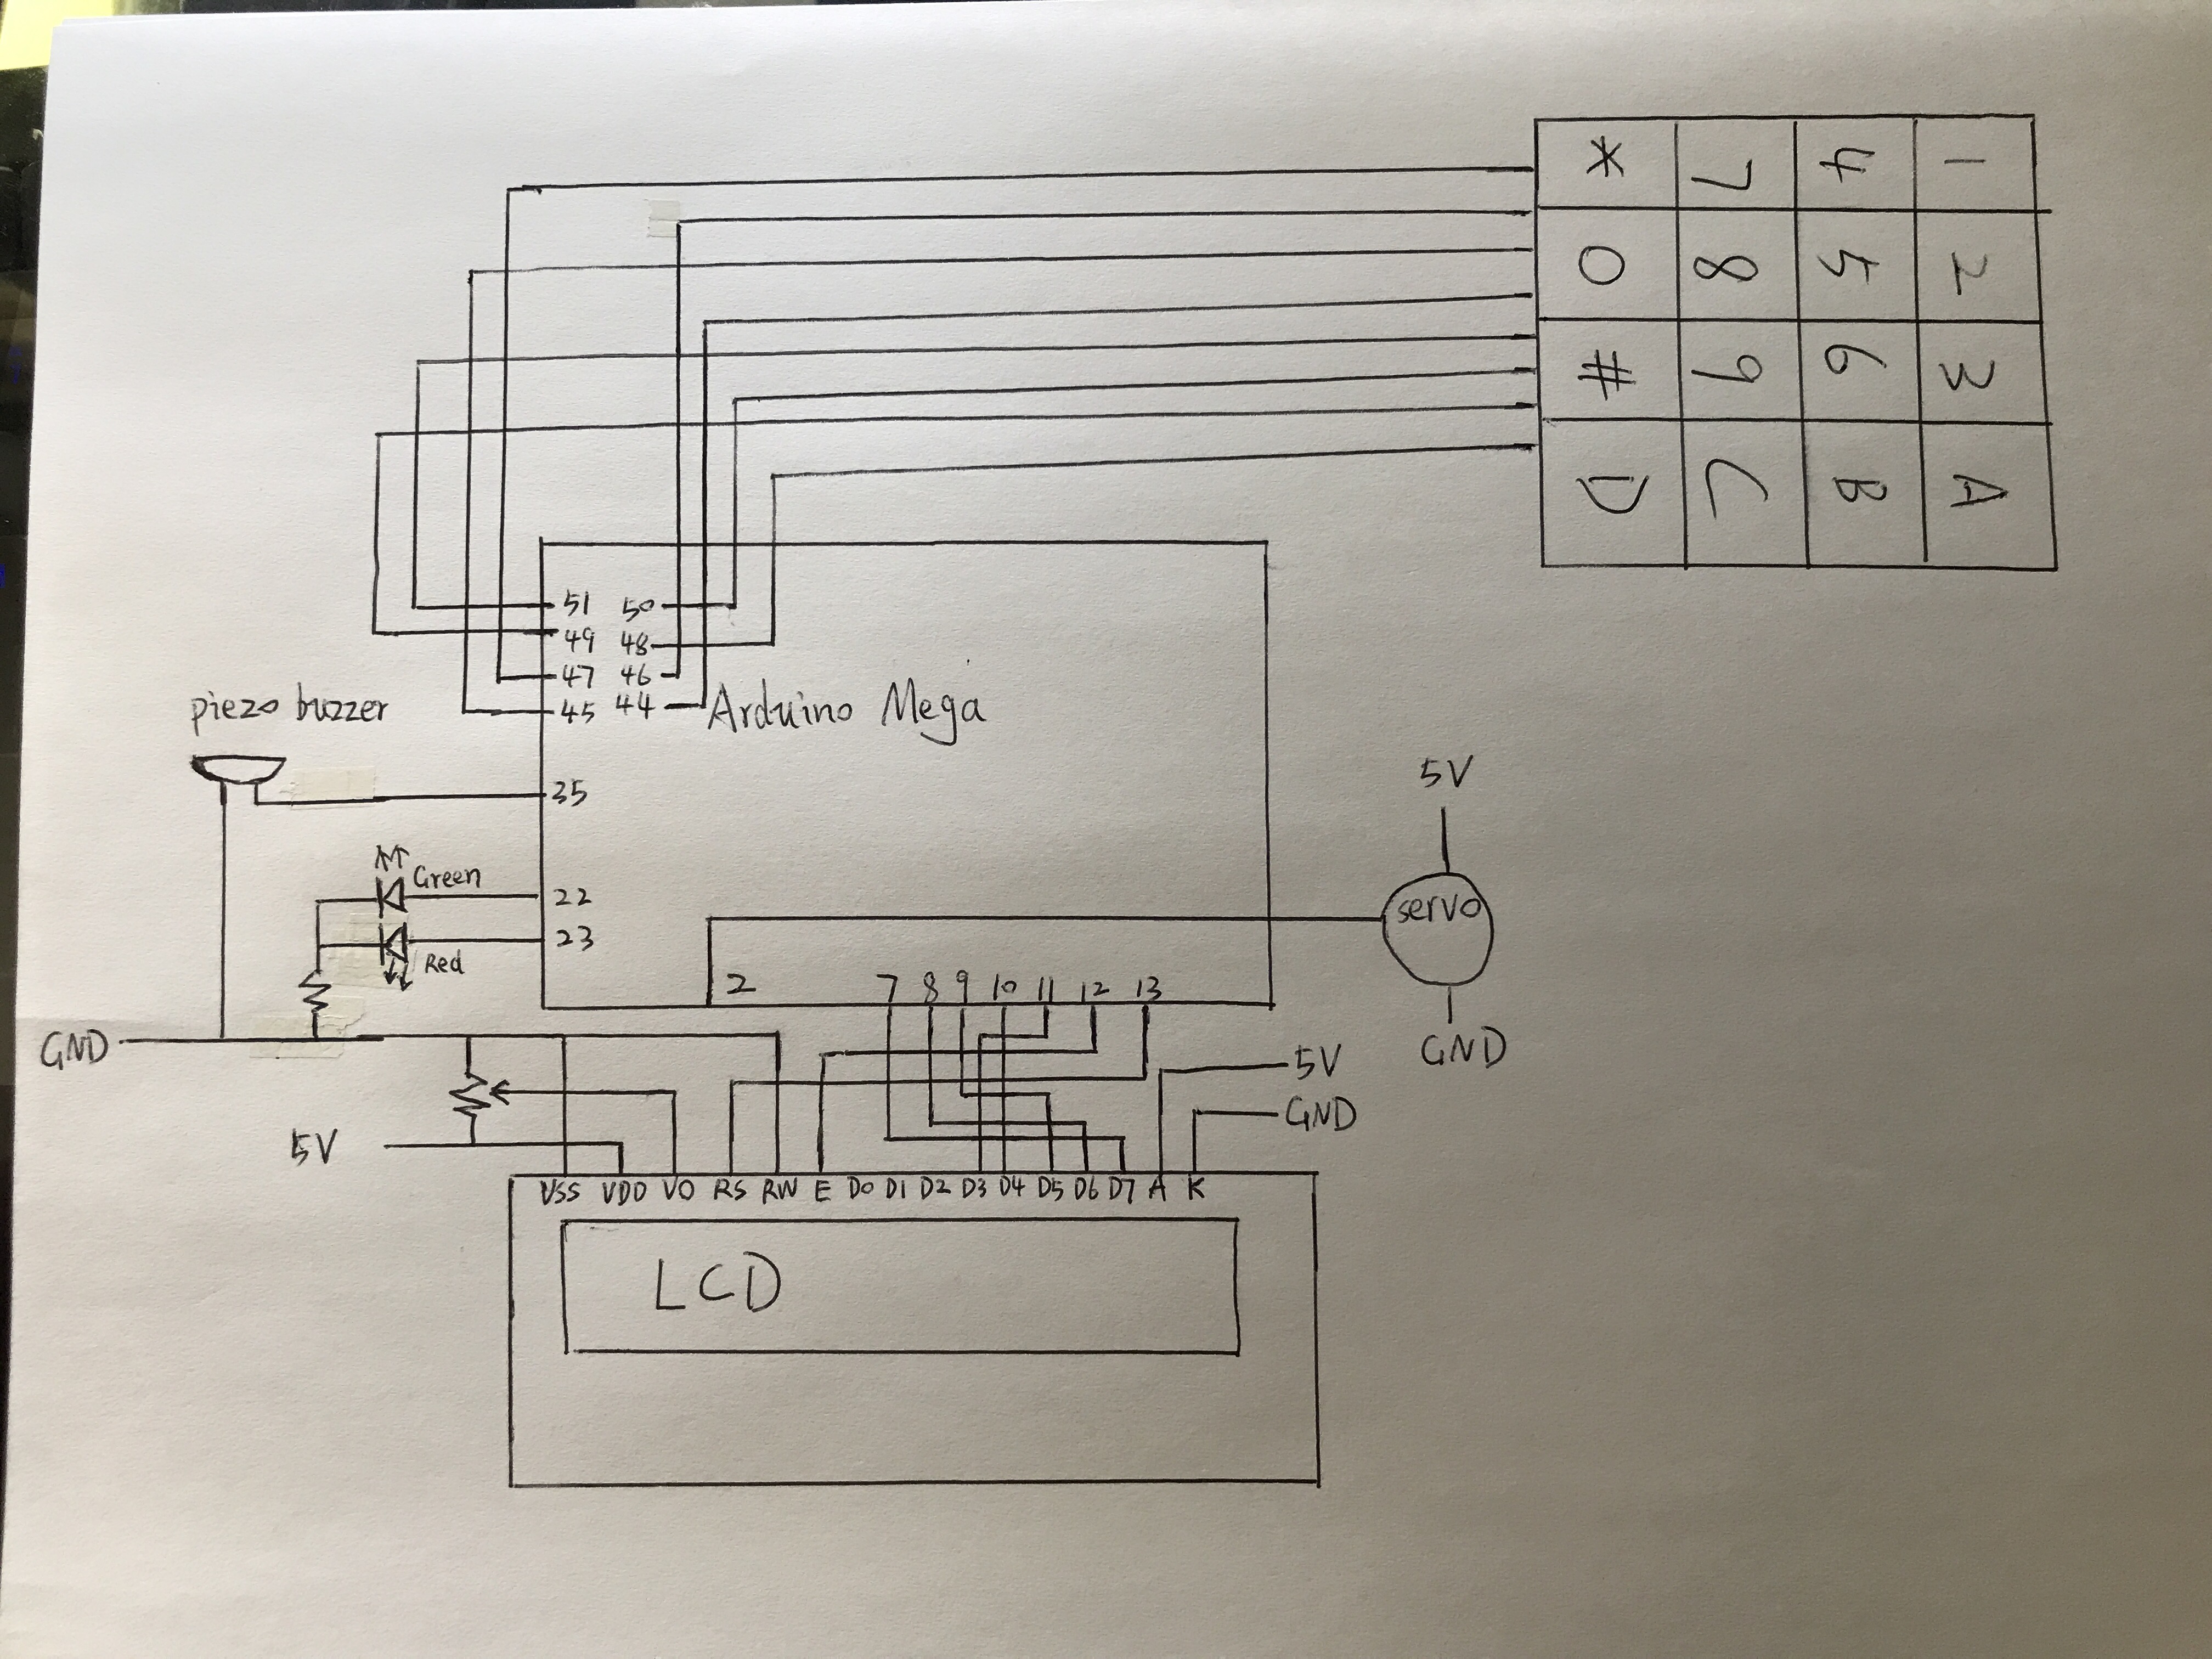 * 7 4 1
0 8 5 2
# 9 6 3
D C B A
51 50
49 48
47 46
45 44
Arduino Mega
piezo buzzer
35
Green
22
23
Red
5V
servo
GND
2 7 8 9 10 11 12 13
GND
5V
GND
5V
VSS VDD VO RS RW E D0 D1 D2 D3 D4 D5 D6 D7 A K
LCD